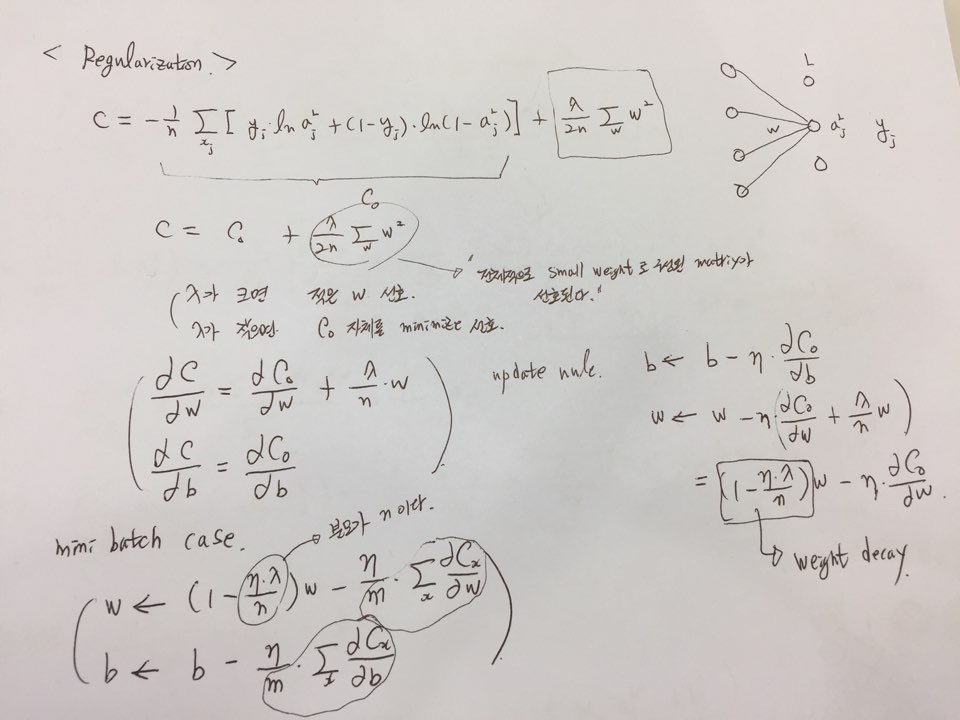 < Regularization. >
C = -1/n Σ_{x_j} [ y_j · ln a_j^L + (1 - y_j) · ln(1 - a_j^L) ] + λ/2n Σ_w w²
C₀
L
w
a_j^L
y_j
C = C₀ + λ/2n Σ_w w²
"전체적으로 small weight로 구성된 matrix가
선호된다."
λ가 크면 작은 w 선호.
λ가 작으면 C₀ 자체를 minimize 선호.
∂C/∂w = ∂C₀/∂w + λ/n · w
∂C/∂b = ∂C₀/∂b
update rule.
b ← b - η · ∂C₀/∂b
w ← w - η · (∂C₀/∂w + λ/n w)
= (1 - η·λ/n) w - η · ∂C₀/∂w.
weight decay.
mini batch case.
분모가 n 이다.
w ← (1 - η·λ/n) w - η/m · Σ_x ∂C_x/∂w
b ← b - η/m · Σ_x ∂C_x/∂b